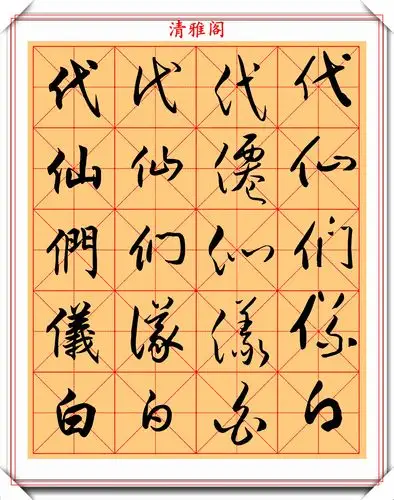 清雅阁
代代代代
仙仙僊仙
們们们們
儀儀儀儀
白白白白